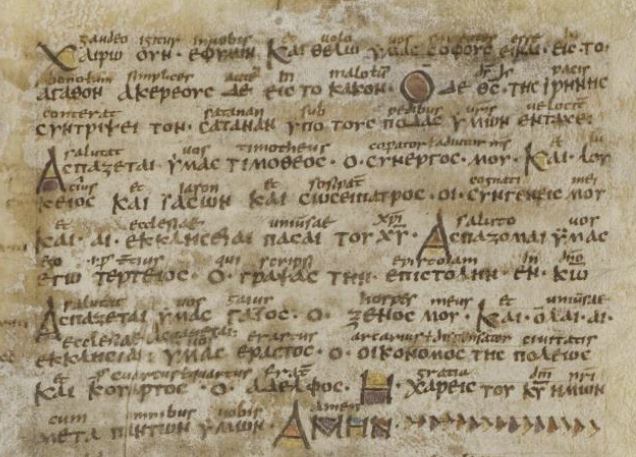 gaudeo igitur in uobis et uolo uos sapientes esse in
ΧΑΙΡΩ ΟΥΝ · ΕΦ ΥΜΙΝ ΚΑΙ ΘΕΛΩ ΥΜΑΣ ΣΟΦΟΥΣ ΕΙΝΑΙ · ΕΙΣ ΤΟ ·
simplices in pacis
ΑΓΑΘΟΝ ΑΚΕΡΕΟΥΣ ΔΕ ΕΙΣ ΤΟ ΚΑΚΟΝ · Ο ΔΕ ΘΣ · ΤΗΣ ΙΡΗΝΗΣ
conterat satanan sub pedibus uris uelociter
ΣΥΝΤΡΙΨΕΙ ΤΟΝ · ΣΑΤΑΝΑΝ ΥΠΟ ΤΟΥΣ ΠΟΔΑΣ ΥΜΩΝ ΕΝ ΤΑΧΕΙ
salutat uos timotheus
ΑΣΠΑΖΕΤΑΙ ΥΜΑΣ ΤΙΜΟΘΕΟΣ · Ο · ΣΥΝΕΡΓΟΣ · ΜΟΥ · ΚΑΙ · ΛΟΥ
cius et iason et cognati mei
ΚΕΙΟΣ ΚΑΙ ΙΑΣΩΝ ΚΑΙ ΣΩΣΕΙΠΑΤΡΟΣ · ΟΙ · ΣΥΝΓΕΝΕΙΣ ΜΟΥ
et ecclesiae uniuersae xpi saluto uos
ΚΑΙ · ΑΙ · ΕΚΚΛΗΣΕΙΑΙ ΠΑΣΑΙ ΤΟΥ ΧΥ · ΑΣΠΑΖΟΜΑΙ ΥΜΑΣ
ego qui scripsi epistolam in dno
ΕΓΩ ΤΕΡΤΕΙΟΣ · Ο · ΓΡΑΨΑΣ ΤΗΝ · ΕΠΙΣΤΟΛΗΝ · ΕΝ · ΚΩ
salutat uos gaius hospes meus et uniuersae
ΑΣΠΑΖΕΤΑΙ ΥΜΑΣ ΓΑΙΟΣ · Ο · ΞΕΝΟΣ ΜΟΥ · ΚΑΙ · ΟΛΑΙ · ΑΙ ·
ecclesiae uos erastus arcarius dispensator ciuitatis
ΕΚΚΛΗΣΙΑΙ : ΥΜΑΣ ΕΡΑΣΤΟΣ · Ο · ΟΙΚΟΝΟΜΟΣ ΤΗΣ ΠΟΛΕΩΣ
et quartus frater gratia dni nri
ΚΑΙ ΚΟΥΑΡΤΟΣ · Ο · ΑΔΕΛΦΟΣ · Η · ΧΑΡΕΙΣ ΤΟΥ ΚΥ ΗΜΩΝ
cum omnibus uobis amen
ΜΕΤΑ ΠΑΝΤΩΝ ΥΜΩΝ · ΑΜΗΝ ·